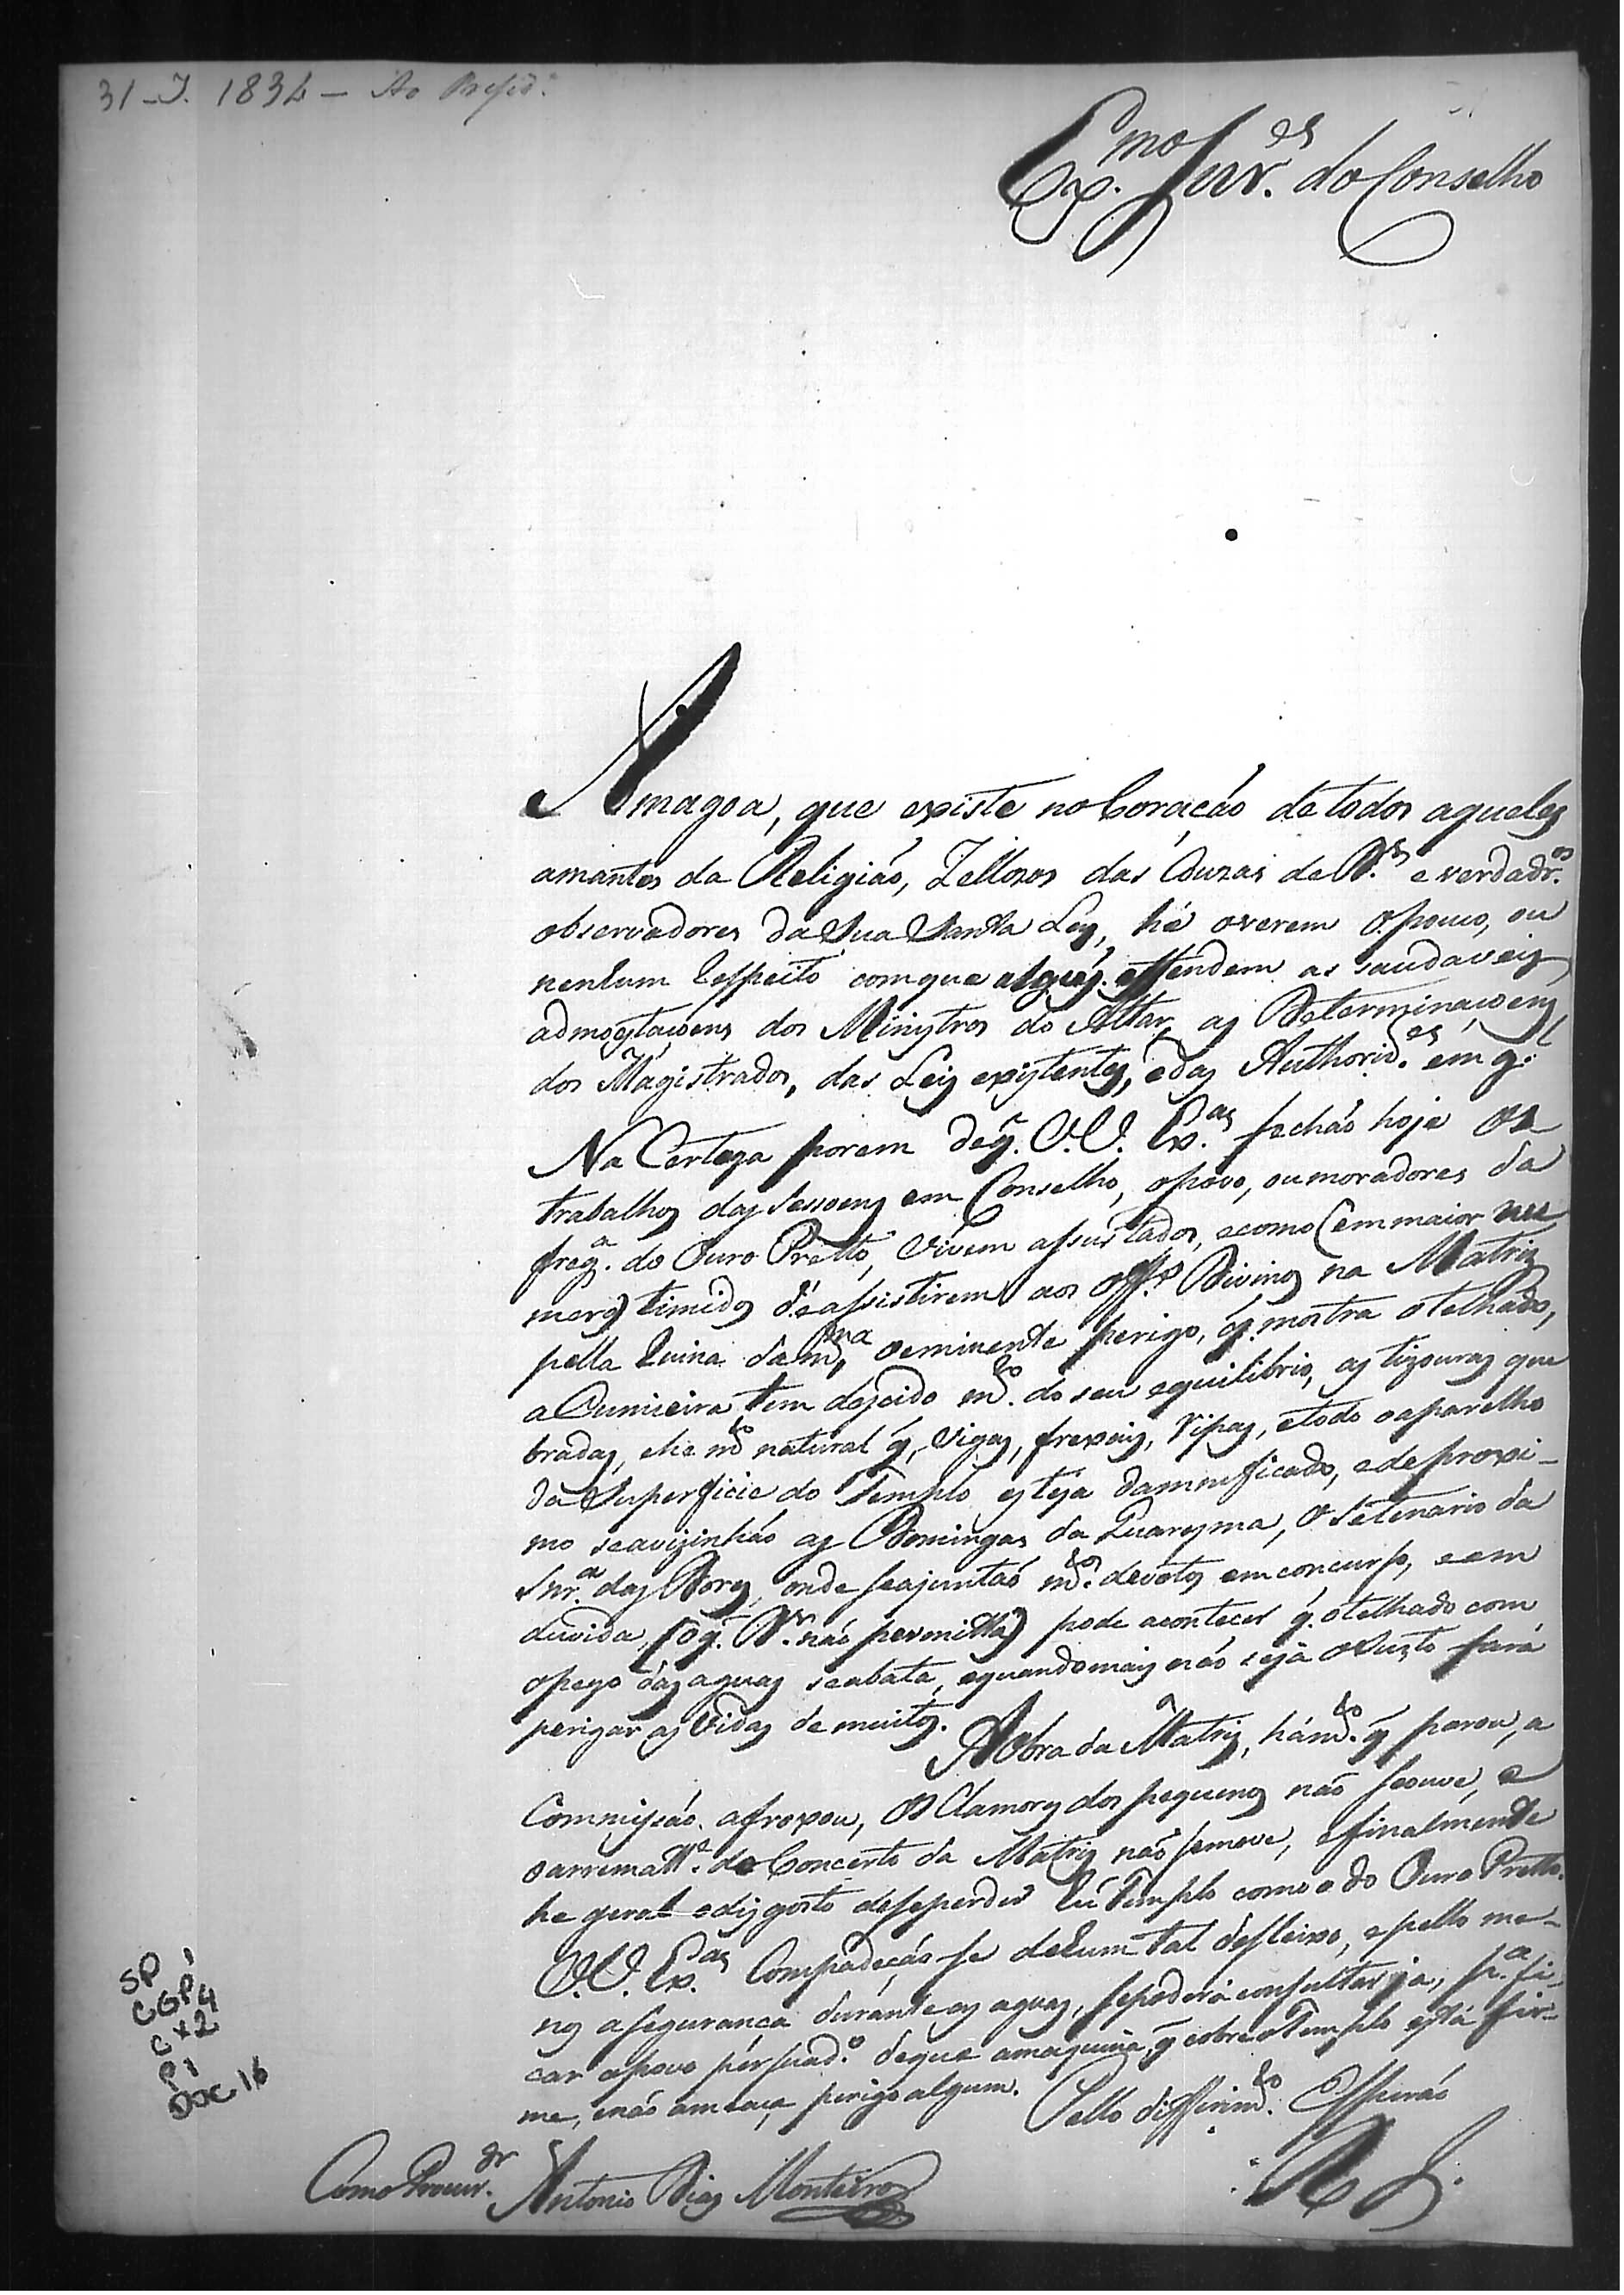 31-I. 1834 - Ao Presid.e
Ex.mo Snr.es do Conselho
A magoa, que existe no Coração de todos aqueles
amantes da Religião, Zellozos das Couzas de D.s e verdadr.os
observadores da Sua Santa Ley, hé o verem o pouco, ou
nenhum Respeito com que alguéz. attendem as saudaveis
admoestacoens dos Ministros do Altar, as Determinacoens
dos Magistrados, das Leis existentes, e das Authorid.es em g.l
Na Certeza porem de q̃. V.V. Ex.as fechão hoje os
trabalhos das Sessoens em Conselho, o povo, ou moradores da
freg.a do Ouro Pretto, Vivem assustados, e como (em maior nu
mero) timidos de assistirem aos Off.os Divinos na Matriz
pella Ruina da m.ma o eminente perigo, q̃. mostra o telhado,
a Cumieira tem descido m.to do seu equilibrio, as tizouras que
bradas, e he m.to natural q̃, Vigas, frexais, Ripas, e todo o aparelho
da Superficie do Templo esteja damnificado, e de proxi-
mo se avizinhão as Domingas da Quaresma, o Setenario da
Snr.a das Dores, onde se ajuntão m.tos devotos em concurso, e em
duvida, (o q̃. D.s não permitta) pode acontecer q̃. o telhado com
o pezo das aguas se abata, e quando mais não seja o Susto fará
perigar as Vidas de muitos.
A Obra da Matriz, há m.to q̃ parou, a
Commissão afroxou, os Clamores dos pequenos não se ouve, e
o arrematt.e do Concerto da Matriz não se move, e finalmente
he geral o disgosto de se perder hũ Templo como o do Ouro Pretto.
V.V. Ex.as Compadeção-se de hum tal desleixo, e pello me-
nos a segurança durante as aguas, se poderá consultar já, p.a fi-
car o povo persuad.o de que a maquina, q̃ cobre o Templo está fir-
me, e não ameaça perigo algum.
Pello differim.to Esperão
R. J.
Como Procur.dor Antonio Dias Monteiro
SP 1
CGP4
Cx2
P1
DOC 16